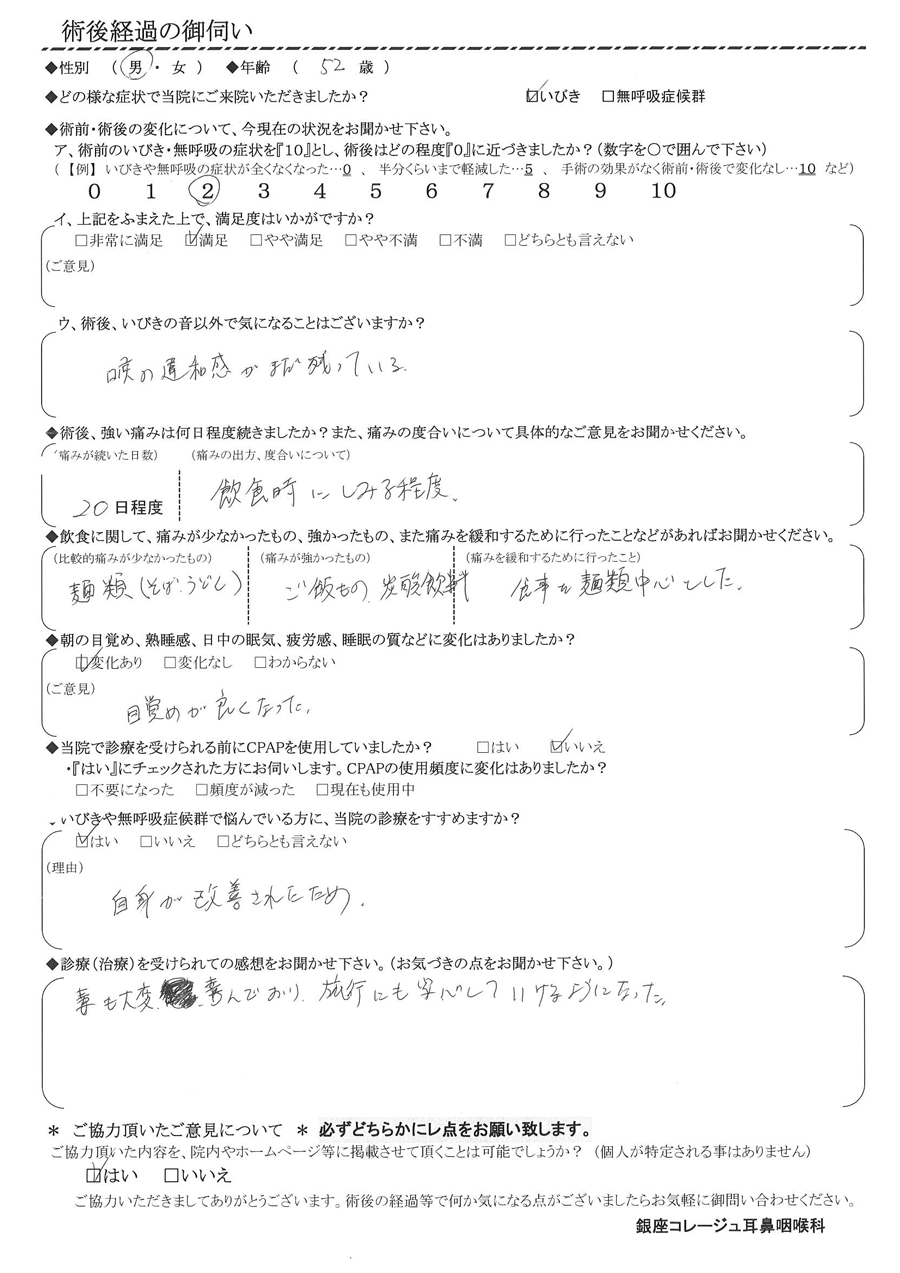 術後経過の御伺い
◆性別 （ 男 ・ 女 ） ◆年齢 （ 52 歳 ）
◆どの様な症状で当院にご来院いただきましたか？ ☑いびき □無呼吸症候群
◆術前・術後の変化について、今現在の状況をお聞かせ下さい。
ア、術前のいびき・無呼吸の症状を『10』とし、術後はどの程度『0』に近づきましたか？（数字を○で囲んで下さい）
（【例】 いびきや無呼吸の症状が全くなくなった…0 、 半分くらいまで軽減した…5 、 手術の効果がなく術前・術後で変化なし…10 など）
0 1 2 3 4 5 6 7 8 9 10
イ、上記をふまえた上で、満足度はいかがですか？
□非常に満足 ☑満足 □やや満足 □やや不満 □不満 □どちらとも言えない
（ご意見）
ウ、術後、いびきの音以外で気になることはございますか？
喉の違和感がまだ残っている。
◆術後、強い痛みは何日程度続きましたか？また、痛みの度合いについて具体的なご意見をお聞かせください。
（痛みが続いた日数） （痛みの出方、度合いについて）
20日程度 飲食時にしみる程度。
◆飲食に関して、痛みが少なかったもの、強かったもの、また痛みを緩和するために行ったことなどがあればお聞かせください。
（比較的痛みが少なかったもの） （痛みが強かったもの） （痛みを緩和するために行ったこと）
麺類（そば、うどん） ご飯もの、炭酸飲料 食事を麺類中心とした。
◆朝の目覚め、熟睡感、日中の眠気、疲労感、睡眠の質などに変化はありましたか？
☑変化あり □変化なし □わからない
（ご意見）
目覚めが良くなった。
◆当院で診療を受けられる前にCPAPを使用していましたか？ □はい ☑いいえ
・『はい』にチェックされた方にお伺いします。CPAPの使用頻度に変化はありましたか？
□不要になった □頻度が減った □現在も使用中
いびきや無呼吸症候群で悩んでいる方に、当院の診療をすすめますか？
☑はい □いいえ □どちらとも言えない
（理由）
自身が改善されたため。
◆診療（治療）を受けられての感想をお聞かせ下さい。（お気づきの点をお聞かせ下さい。）
妻も大変、喜んでおり、旅行にも安心していけるようになった。
＊ ご協力頂いたご意見について ＊ 必ずどちらかにレ点をお願い致します。
ご協力頂いた内容を、院内やホームページ等に掲載させて頂くことは可能でしょうか？ （個人が特定される事はありません）
☑はい □いいえ
ご協力いただきましてありがとうございます。術後の経過等で何か気になる点がございましたらお気軽に御問い合わせください。
銀座コレージュ耳鼻咽喉科